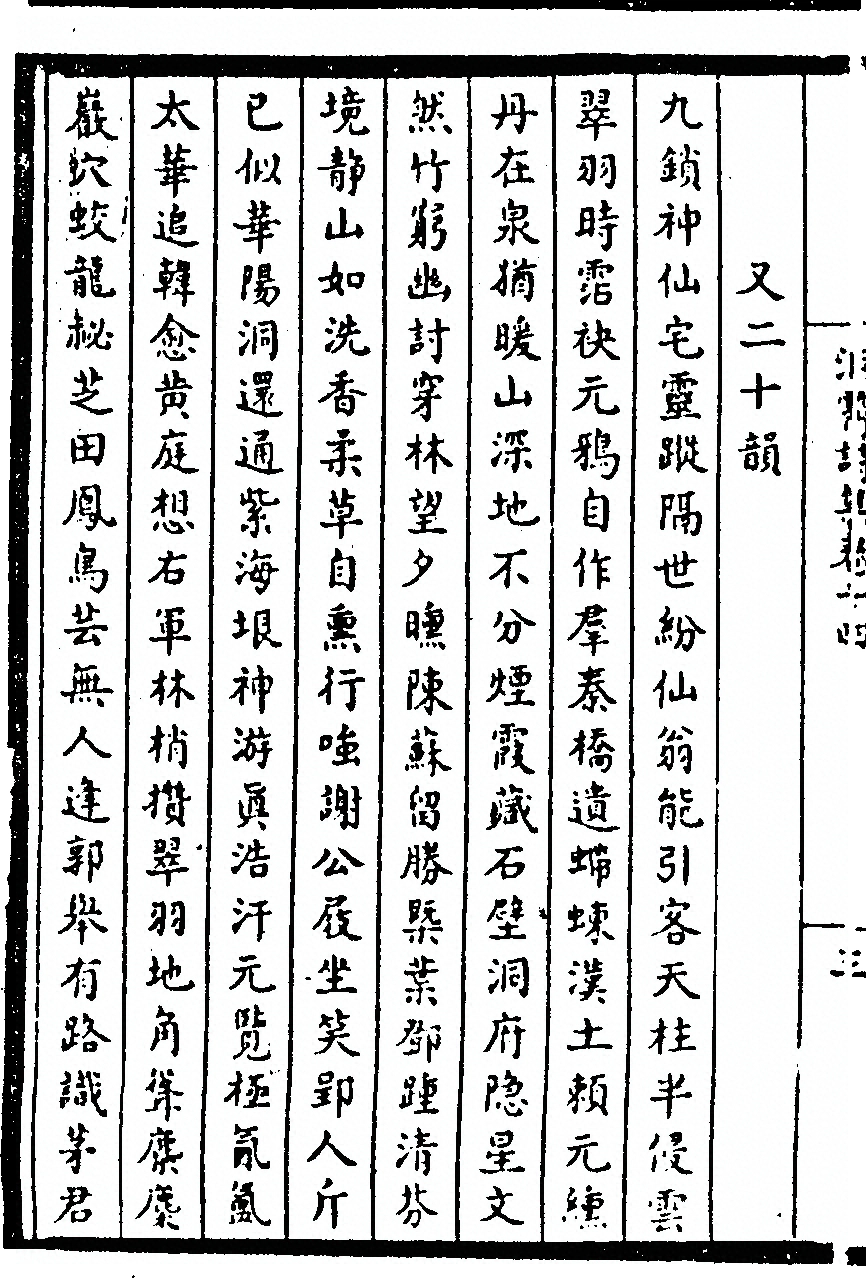 又二十韻
九鎖神仙宅靈蹤隔世紛仙翁能引客天柱半侵雲
翠羽時霑袂元鴉自作羣秦橋遺螮蝀漢土賴元纁
丹在泉猶暖山深地不分煙霞藏石壁洞府隐星文
然竹窮幽討穿林望夕曛陳蘇留勝槩葉鄧踵清芬
境静山如洗香柔草自熏行嗤謝公屐坐笑郢人斤
已似華陽洞還通紫海垠神游眞浩汗元覽極氤氲
太華追韓愈黄庭想右軍林梢攢翠羽地角聚麇麇
巖穴蛟龍祕芝田鳳鳥芸無人逢郭舉有路識茅君
三